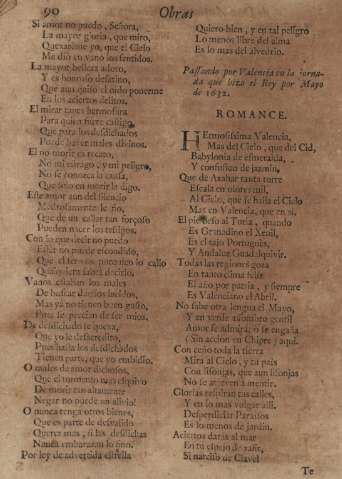 90
Obras
Si amor no puedo, Señora,
La mayor gloria, que miro,
Quexaréme yo, que el Cielo
Me dió en vano los sentidos.
La mayor belleza adoro,
Y es honroso desatino,
Que aun quiso el oido ponerme
En los aciertos delitos.
El mirar tanta hermosura
Para quien fuere castigo,
Que para los desdichados
Puede haver males divinos.
El no morir es recato,
No mi estrago, y mi peligro,
No se conozca la causa,
Que solo en morir la digo.
Este amor aun del silencio
Medrosamente le fio,
Que de un callar tan forçoso
Pueden nacer los suspiros.
Con lo que decir no puedo
Estar no puede escondido,
Que el temor, porque lo callo
Qualquiera sabrá decirlo.
Vanos estaban los males
De buscar
Mas yá no tienen buen gusto,
Pues se precian de ser mios.
De desdichado se quexa,
Que yo le desacredito,
Pues hasta los desdichados
Tienen parte, que yo embidio.
O males de amor dichosos,
Que el tormento mas esquivo
De morir tan altamente
Negar no puede un alivio!
O nunca tenga otros bienes,
Que es parte de desvalido
Querer mas, si las desdichas
Nunca embarazan lo fino.
Por ley de advertida estrella
Quiero bien, y en tal peligro
Lo menos libre del alma
Es lo mas del alvedrio.
Passando por Valencia en la jorna-
da que hizo el Rey por Mayo
de 1632.
ROMANCE.
HErmosissima Valencia,
Mas del Cielo, que del Cid,
Babylonia de esmeralda,
Y confusion de jazmin,
Que de Azahar tanta torre
Escala en olores mil,
Al Cielo, que se halla el Cielo
Mas en Valencia, que en si.
El pie beso al Turia, quando
Es Granadino el Xenil,
Es el tajo Portugues,
Y Andaluz Guadalquivir.
Todas las regiones goza
En tanto clima feliz
El año por patria, y siempre
Es Valenciano el Abril.
No sabe otra lengua el Mayo,
Y en verde assombro gentil
Amor se admira, ò se engaña
(Sin accion en Chipre) aqui.
Con ceño toda la tierra
Mira al Cielo, y tu pais
Con lisonjas, que aun lisonjas
No se atreven á mentir.
Glorias resultan tus calles,
Y en lo mas vulgar alli.
Desperdiciar Paraisos
Es lo menos de jardin.
Aciertos darás al mar
En tu espejo de zafir,
Si narciso de Clavel
Te